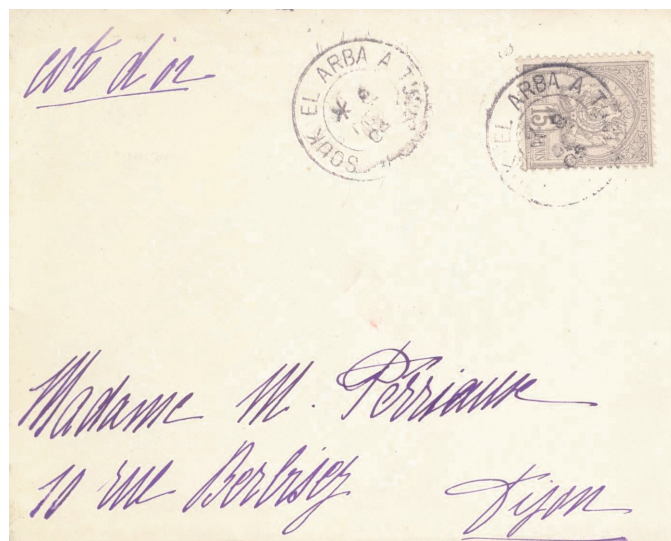 cote d'or
SOUK EL ARBA A
EL ARBA A
15
Madame M. Perriaux
10 rue Berbisey
Dijon